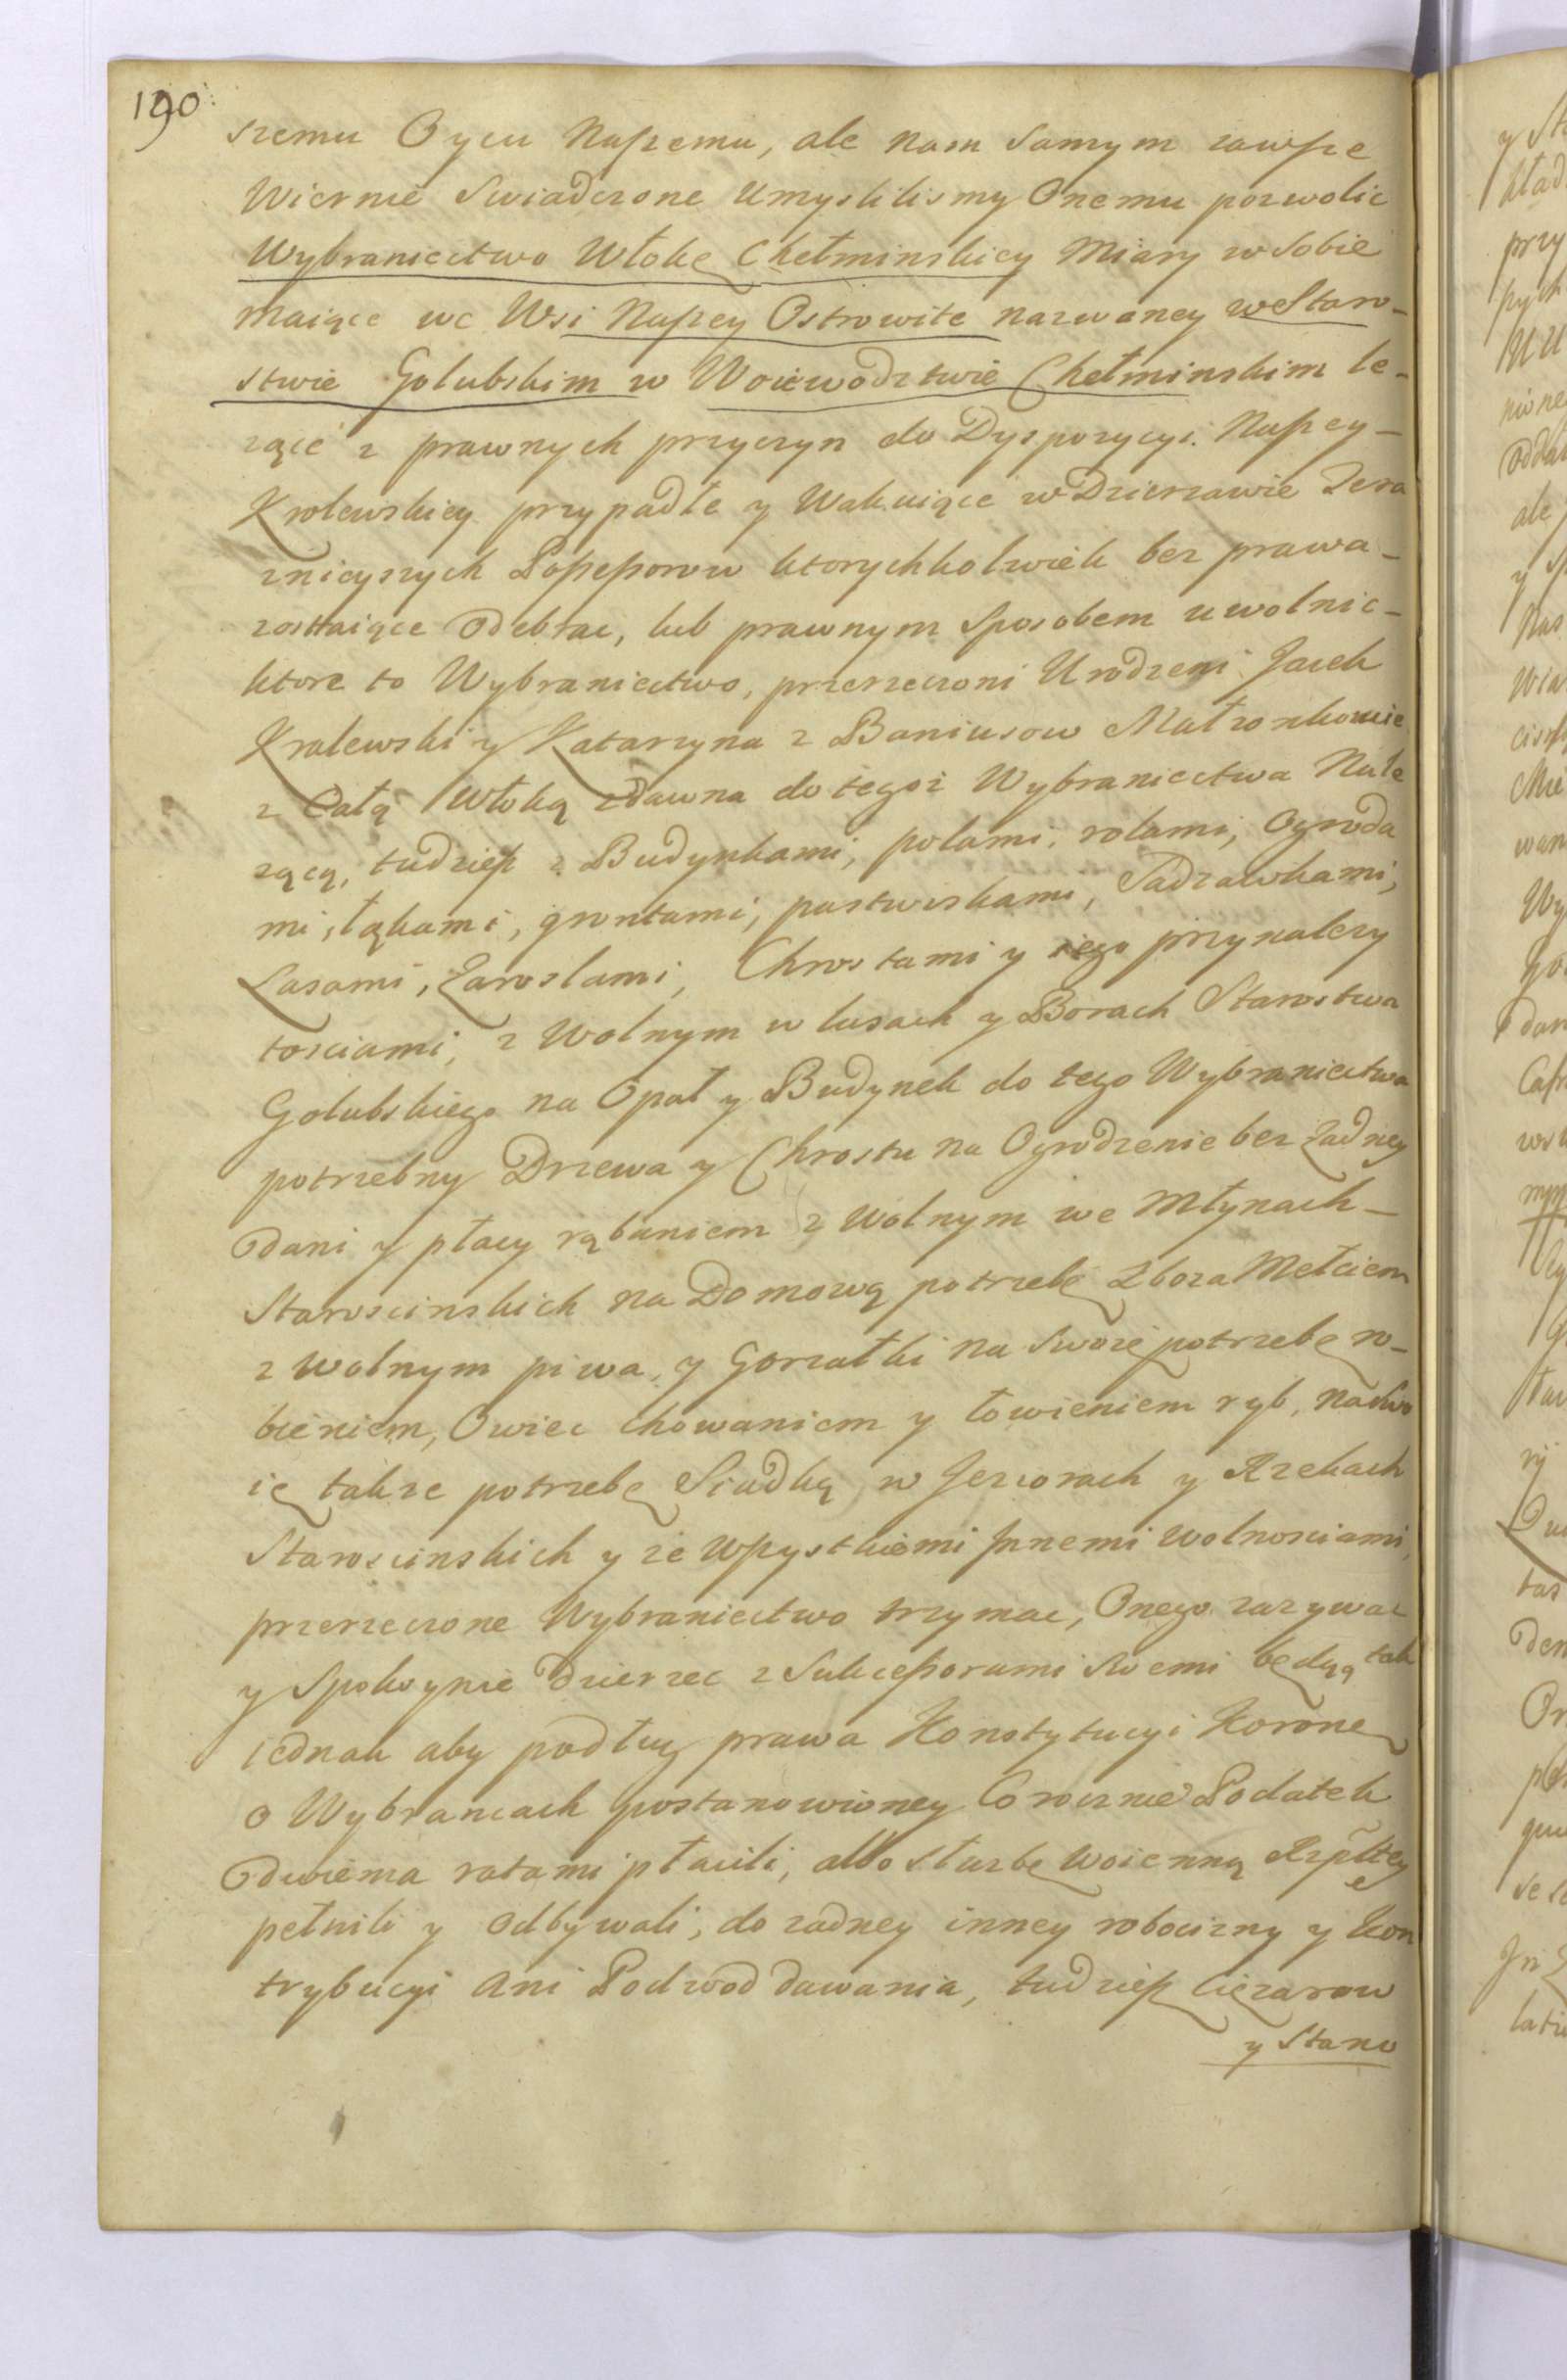 190
szemu Oycu Naszemu, ale nam samym zawsze
Wiernie Swiadczone Umyslilismy Onemu pozwolic
Wybraniectwo Włokę Chełminskiey Miary w Sobie
maiące we Wsi Naszey Ostrowite nazwaney w Staro-
stwie Golubskim w Woiewodztwie Chełminskim le-
zące z prawnych przyczyn do Dyspozycyi Naszey-
Krolewskiey przypadłe y Wakuiące w Dzierzawie Tera
znieyszych Possessorow ktorychkolwiek bez prawa-
zostaiące Odebrac, lub prawnym Sposobem uwolnic-
ktore to Wybraniectwo, przerzeczoni Urodzeni Jacek
Kralewski y Katarzyna z Baniusow Małzonkowie
z Całą Włoką zdawna do tegoz Wybraniectwa Nale
zącą, tudziesz z Budynkami, polami, rolami, Ogroda
mi, łąkami, gruntami, pastwiskami, Sadzawkami,
Lasami, Zaroslami, Chrostami y iego przynalezy
tosciami, z Wolnym w lasach y Borach Starostwa
Golubskiego na Opał y Budynek do tego Wybraniectwa
potrzebny Drzewa y Chrostu na Ogrodzenie bez zadney
Dani y płacy rąbaniem z Wolnym we Młynach-
Staroscinskich na Domową potrzebę Zboza Mełciem
z wolnym piwa, y Gorzałki na Swoię potrzebę ro-
bieniem, Owiec chowaniem y łowieniem ryb, na Swo
ię takze potrzebę Siadką w Jeziorach y Rzekach
Staroscinskich y ze Wszystkiemi Jnnemi wolnosciami,
przerzeczone Wybraniectwo trzymac, Onego zazywac
y Spokoynie Dzierzec z Sukcessorami Swemi będą, tak
iednak aby podług prawa Konstytucyi Koronney
o Wybrancach postanowioney Corocznie Podatek
Dwiema ratami płacili, albo słuzbę woienną Rzpltey
pełnili y Odbywali, do zadney inney robocizny y Kon
trybucyi Ani Podwod dawania, tudziesz Cięzarow
y Stano